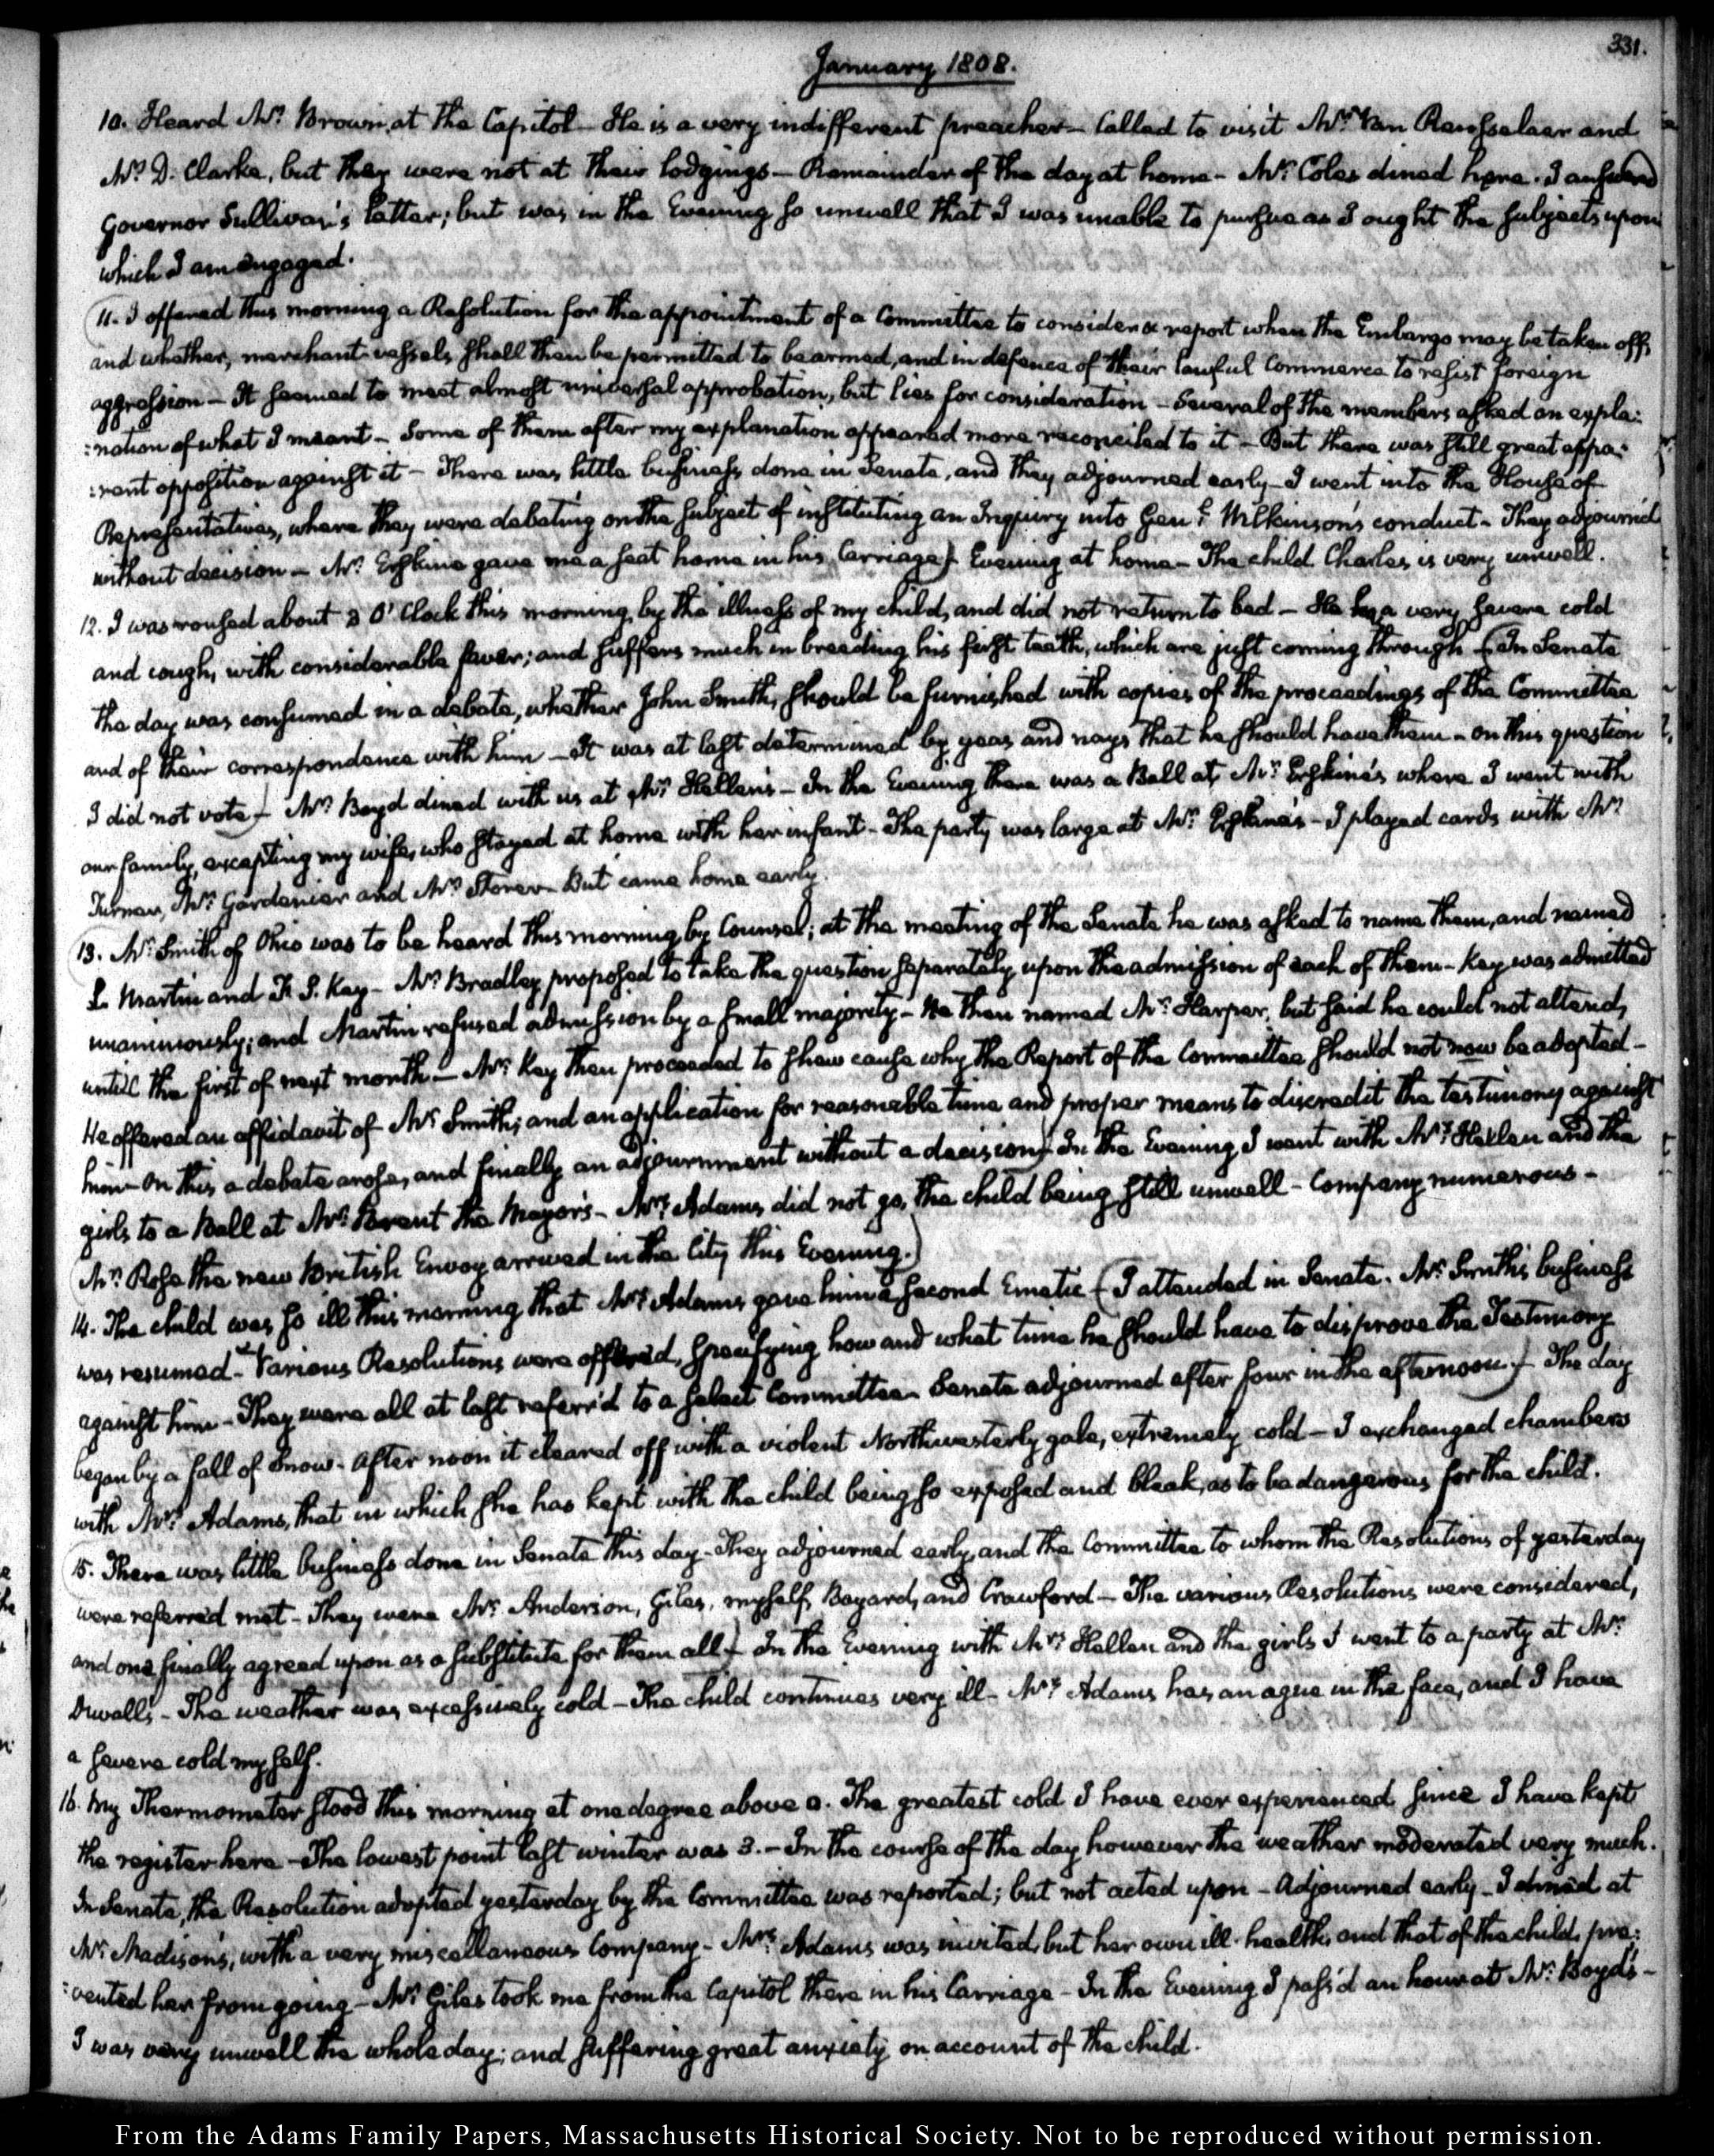 331.
January 1808.
10. Heard Mr. Brown at the Capitol – He is a very indifferent preacher – Called to visit Mr. Van Rensselaer and
Mr. D. Clarke, but they were not at their lodgings – Remainder of the day at home – Mr. Coles dined here. I answered
Governor Sullivan's Letter; but was in the Evening so unwell that I was unable to pursue as I ought the subjects upon
which I am engaged.
11. I offered this morning a Resolution for the appointment of a Committee to consider & report when the Embargo may be taken off,
and whether, merchant-vessels shall then be permitted to be armed, and in defence of their lawful Commerce to resist foreign
aggression – It seemed to meet almost universal approbation, but lies for consideration – Several of the members asked an expla:
:nation of what I meant – Some of them after my explanation appeared more reconciled to it – But there was still great appa:
:rent opposition against it – There was little business done in Senate, and they adjourned early – I went into the House of
Representatives, where they were debating on the subject of instituting an Inquiry into Genl. Wilkinson's conduct – They adjourn'd
without decision – Mr. Erskine gave me a seat home in his Carriage) – Evening at home – The child Charles is very unwell.
12. I was roused about 3 O'Clock this morning, by the illness of my child, and did not return to bed – He has a very severe cold
and cough, with considerable fever; and suffers much in breeding his first teeth, which are just coming through – (In Senate
the day was consumed in a debate, whether John Smith, should be furnished with copies of the proceedings of the Committee
and of their correspondence with him – It was at last determined by yeas and nays that he should have them – on this question
I did not vote) – Mr. Boyd dined with us at Mr. Hellen's – In the Evening there was a Ball at Mr. Erskine's where I went with
our family, excepting my wife, who stayed at home with her infant – The party was large at Mr. Erskine's – I played cards with Mr.
Turner, Mr. Gardenier and Mr. Storer – But came home early.
(13. Mr. Smith of Ohio was to be heard this morning by Counsel; at the meeting of the Senate he was asked to name them, and named
L. Martin and F. S. Key – Mr. Bradley proposed to take the question separately upon the admission of each of them – Key was admitted
unanimously; and Martin refused admission by a small majority – He then named Mr. Harper, but said he could not attend,
until the first of next month – Mr. Key then proceeded to shew cause why the Report of the Committee should not now be adopted –
He offered an affidavit of Mr. Smith; and an application for reasonable time and proper means to discredit the testimony against
him – On this a debate arose, and finally an adjournment without a decision) – In the Evening I went with Mrs. Hellen and the
girls to a Ball at Mr. Brent the Mayor's – Mrs. Adams did not go, the child being still unwell – Company numerous –
(Mr. Rose the new British Envoy arrived in the City this Evening.)
14. The child was so ill this morning that Mrs. Adams gave him a second Emetic – (I attended in Senate. Mr. Smith's business
was resumed – Various Resolutions were offered, specifying how and what time he should have to disprove the Testimony
against him – They were all at last referr'd to a select Committee – Senate adjourned after four in the afternoon.) – The day
began by a fall of Snow – After noon it cleared off with a violent Northwesterly gale, extremely cold – I exchanged chambers
with Mrs. Adams, that in which she has kept with the child being so exposed and bleak, as to be dangerous for the child.
(15. There was little business done in Senate this day – They adjourned early, and the Committee to whom the Resolutions of yesterday
were referred met – They were Mr. Anderson, Giles, myself, Bayard, and Crawford – The various Resolutions were considered,
and one finally agreed upon as a substitute for them all) – In the Evening with Mrs. Hellen and the girls I went to a party at Mr.
Duvall's – The weather was excessively cold – The child continues very ill – Mrs. Adams has an ague in the face, and I have
a severe cold myself.
16. My Thermometer stood this morning at one degree above 0. The greatest cold I have ever experienced since I have kept
the register here – The lowest point last winter was 3. – In the course of the day however the weather moderated very much.
In Senate, the Resolution adopted yesterday by the Committee was reported; but not acted upon – Adjourned early – I dined at
Mr. Madison's, with a very miscellaneous Company – Mrs. Adams was invited, but her own ill-health, and that of the child, pre:
:vented her from going – Mr. Giles took me from the Capitol there in his Carriage – In the Evening I pass'd an hour at Mr. Boyd's –
I was very unwell the whole day; and suffering great anxiety on account of the child.
From the Adams Family Papers, Massachusetts Historical Society. Not to be reproduced without permission.